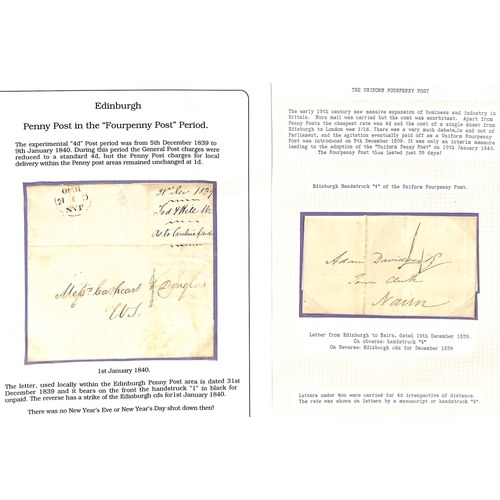 Edinburgh
Penny Post in the "Fourpenny Post" Period.
The experimental "4d" Post period was from 5th December 1839 to
9th January 1840. During this period the General Post charges were
reduced to a standard 4d, but the Penny Post charges for local
delivery within the Penny post areas remained unchanged at 1d.
31st Dec 1839
JAN
1840
Messrs Cathcart & Douglas
W.S.
1st January 1840.
The letter, used locally within the Edinburgh Penny Post area is dated 31st
December 1839 and it bears on the front the handstruck "1" in black for
unpaid. The reverse has a strike of the Edinburgh cds for 1st January 1840.
There was no New Year's Eve or New Year's Day shut down then!
THE UNIFORM FOURPENNY POST
The early 19th century saw massive expansion of business and industry in
Britain. More mail was carried but the cost was exorbitant. Apart from
Penny Posts the cheapest rate was 4d and the cost of a single sheet from
Edinburgh to London was 1/1½d. There was a very much debate,in and out of
Parliament, and the agitation eventually paid off as a Uniform Fourpenny
Post was introduced on 5th December 1839. It was only an interim measure
leading to the adoption of the "Uniform Penny Post" on 10th January 1840.
The Fourpenny Post thus lasted just 36 days!
Edinburgh Handstruck "4" of the Uniform Fourpenny Post.
Adam Davidson
Town Clerk
Nairn
Letter from Edinburgh to Nairn, dated 10th December 1839.
On obverse: handstruck "4"
On Reverse: Edinburgh cds for December 1839
Letters under ½oz were carried for 4d irrespective of distance.
The rate was shown on letters by a manuscript or handstruck "4".